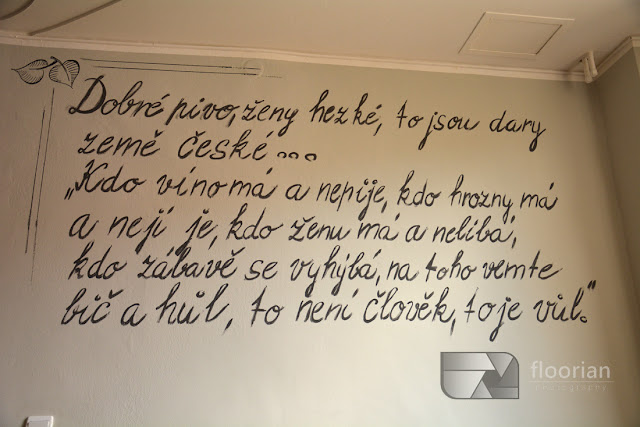 Dobré pivo, ženy hezké, to jsou dary
země české...
„Kdo víno má a nepije, kdo hrozny má
a nejí je, kdo ženu má a nelíbá,
kdo zábavě se vyhýbá, na toho vemte
bič a hůl, to není člověk, to je vůl."
floorian
photography